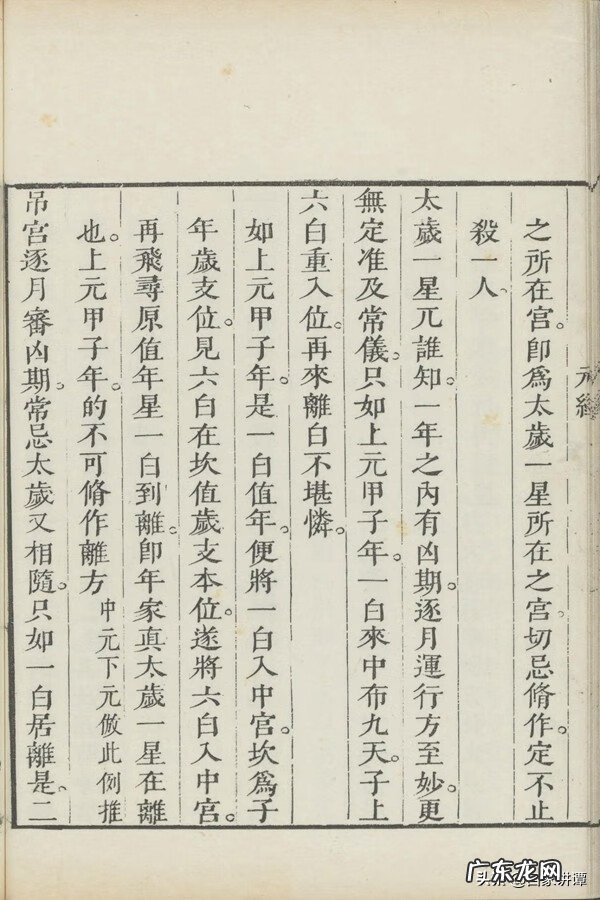 元經
之所在宮。卽為太歲一星所在之宮。切忌脩作。定不止
殺一人。
太歲一星兀誰知。一年之內有凶期。逐月運行方至妙。更
無定准及常儀。只如上元甲子年。一白來中布九天。子上
六白重入位。再來離白不堪憐。
如上元甲子年。是一白值年。便將一白入中宮。坎為子
年歲支位。見六白在坎值歲支本位。遂將六白入中宮。
再飛尋原值年星一白到離。卽年家真太歲一星在離
也。上元甲子年。的不可脩作離方 中元下元倣此例推
吊宮逐月審凶期。常忌太歲又相隨。只如一白居離是。二
广东龙网
头条 @百家讲谭